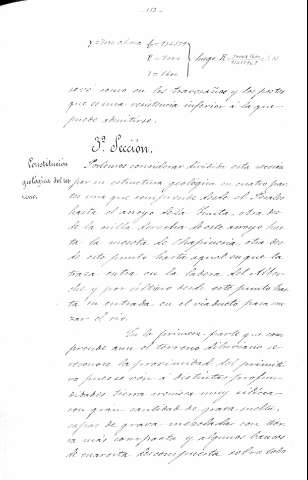 - 113 -
luego R =
será como en los travesaños y los postes
que es una resistencia inferior á la que
puede admitirse.
3ª Sección.
Constitución
geológica del ter
reno.
Podemos considerar dividida esta sección
por su estructura geológica en cuatro par
tes una que comprende desde el Perales
hasta el arroyo de la Fruta, otra des
de la orilla derecha de este arroyo has
ta la meseta de Chapinería, otra des
de este punto hasta aquel en que la
traza entra en la ladera del Alber
che y por último desde este punto has
ta su entrada en el viaducto para cru
zar el río.
En la primera parte que com
prende aun el terreno diluviano se
reconoce la proximidad del primiti
vo pues se vén á distintas profun
didades tierra arenosa muy silícea
con gran cantidad de grava suelta,
capas de grava mezcladas con tier
ra más compacta y algunos bancos
de descompuesta sobre todo